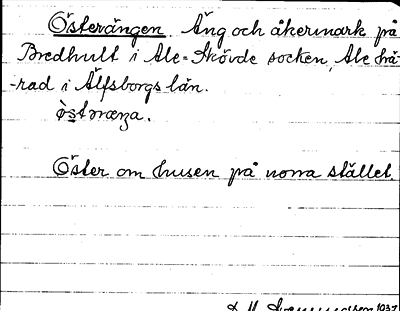 Österängen. Äng och åkermark på
Bredhult i Ale-Skövde socken, Ale hä-
-rad i Älfsborgs län.
Öster om husen på norra stället.